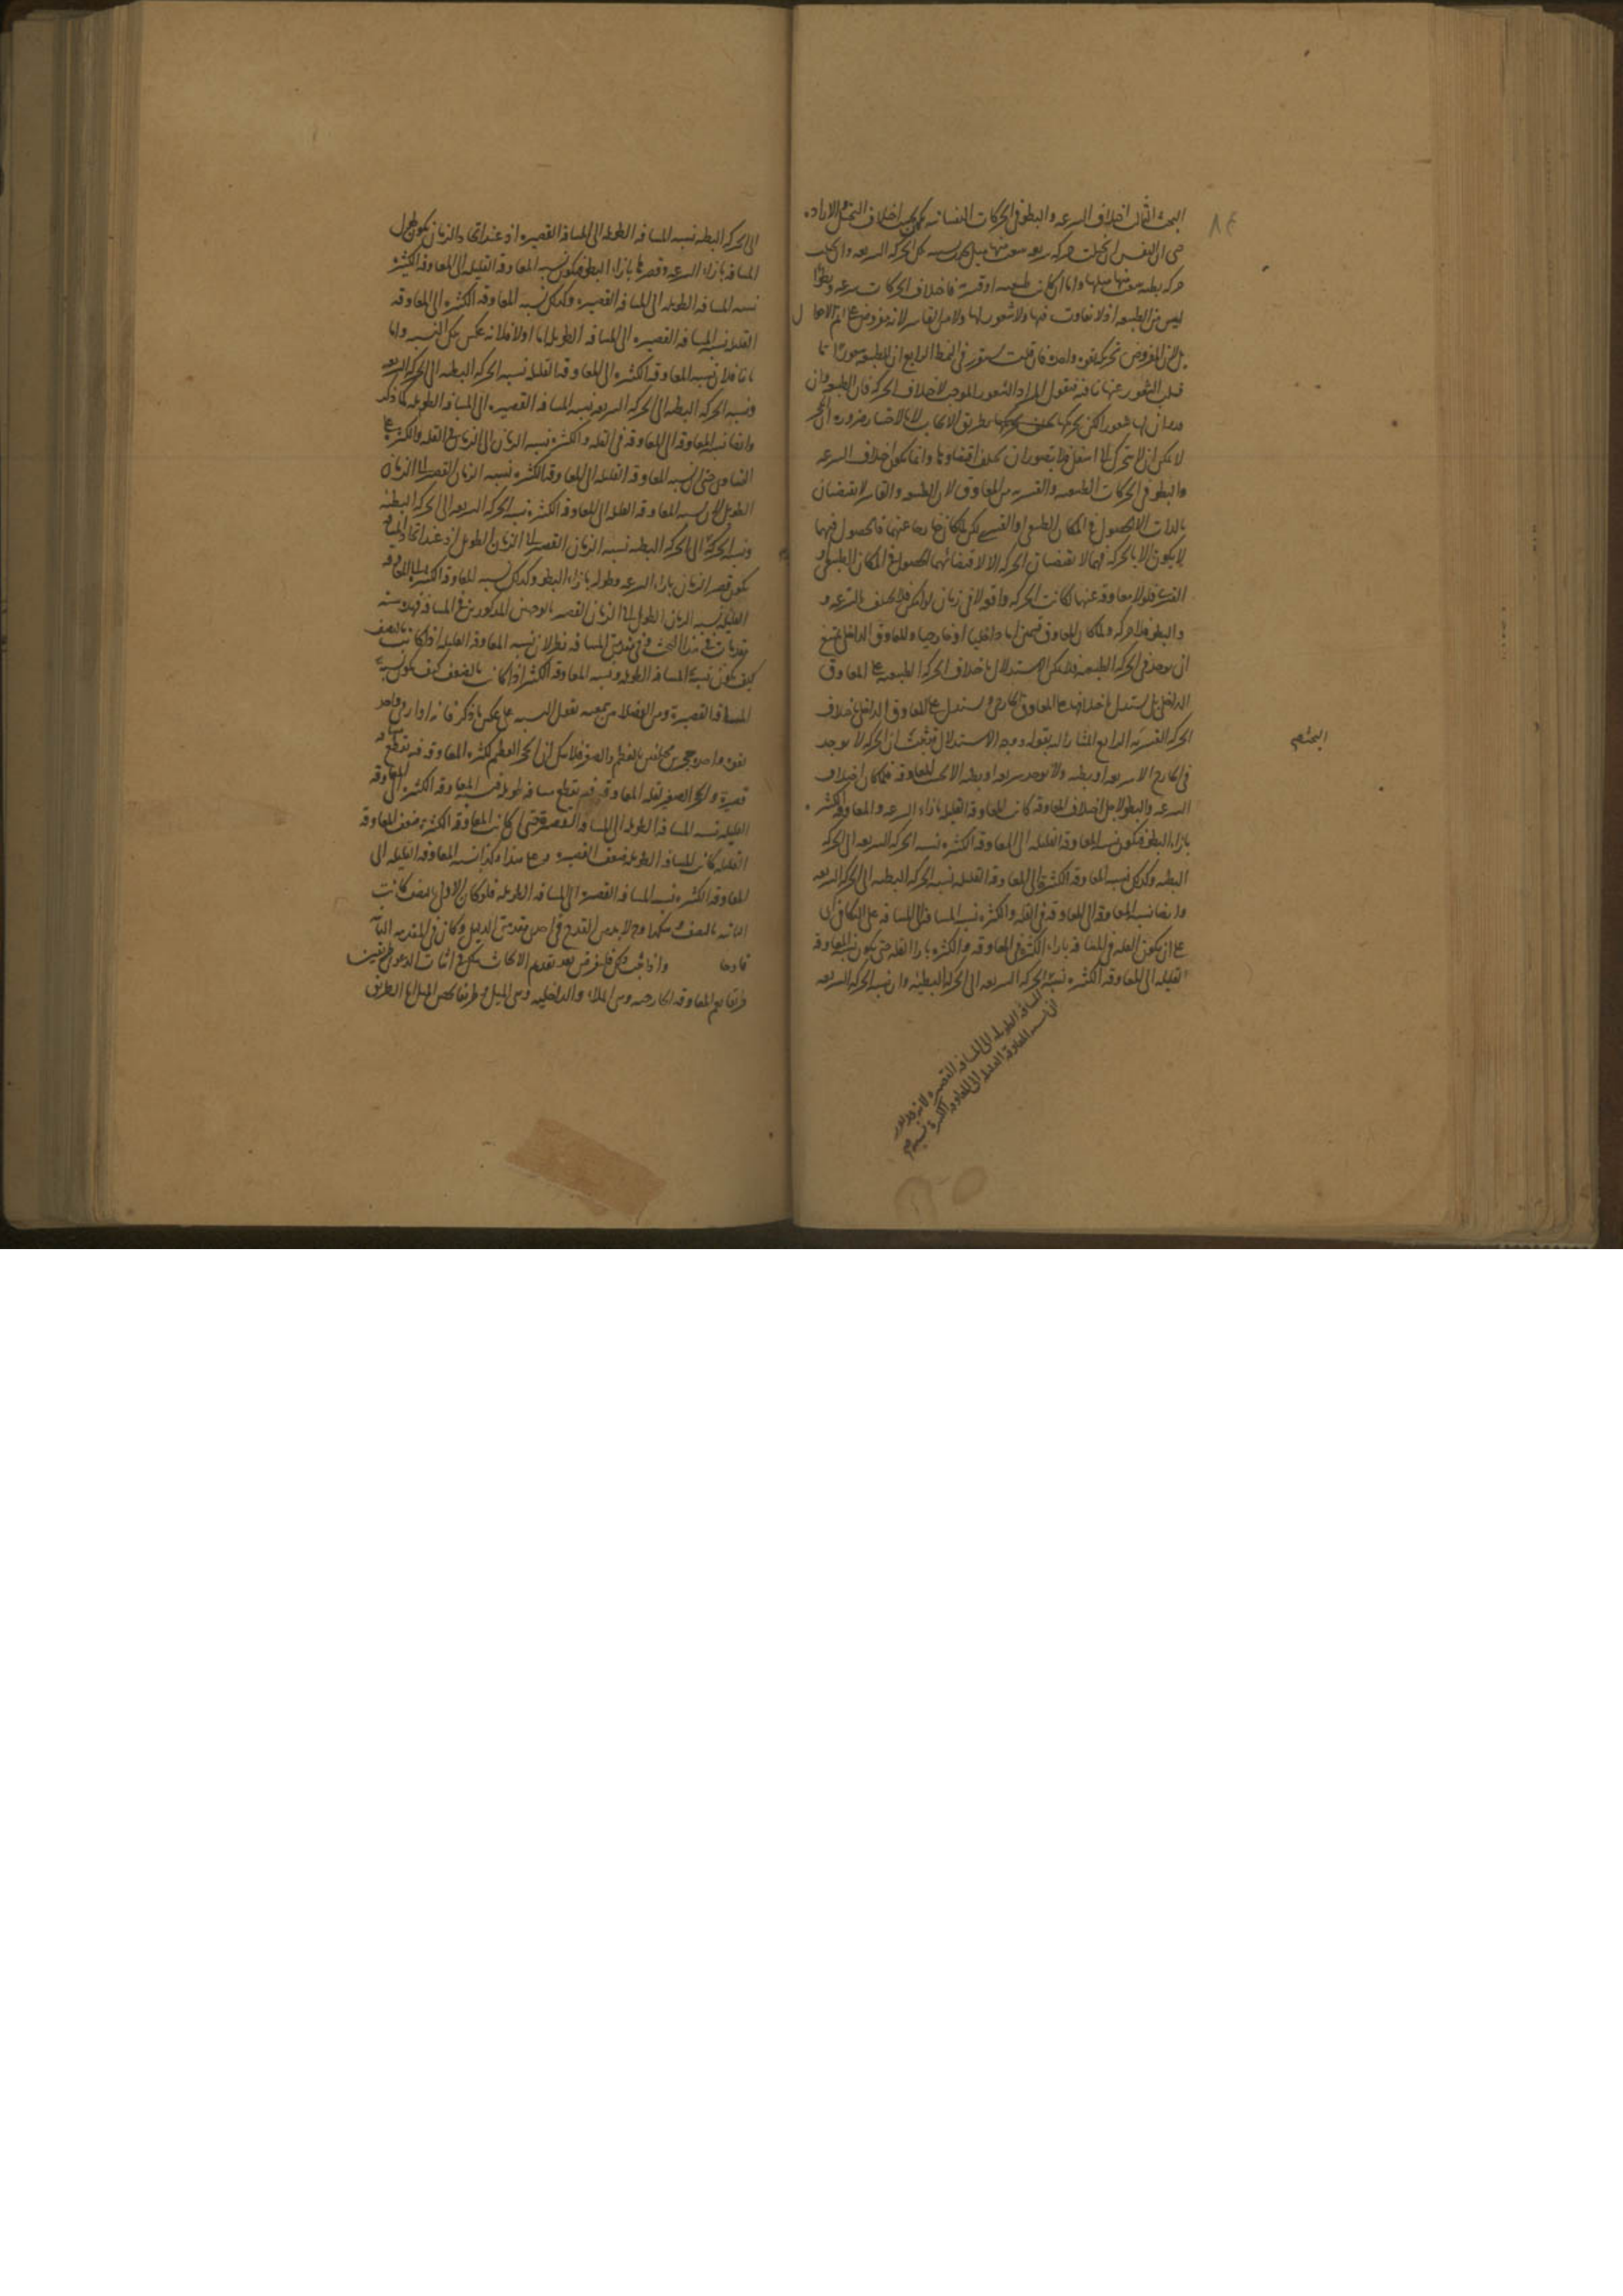 البحث الثالث اختلاف السرعه والبطؤ في الحركات النفسانيه يمكن بحسب اختلاف التخيل والاراده
حتى ان النفس ان تخيلت حركه سريعه ينبعث منها ميل بحسبه تلك الحركه السريعه وان تخيلت
حركه بطيه ينبعث منها ميلها واما ان كانت طبيعيه او قسريه فاختلاف الحركات سرعه وبطؤا
ليس من الطبيعه اذ لا تفاوت فيها ولا شعور لها ولا من القاسر لانه مفروض على اتم الاحوال
بل من المفروض تحريكه بقوه واحده فان قلت سيقرر في النمط الرابع ان للطبيعه شعورا ما
فسلب الشعور عنها ينافيه فنقول المراد الشعور الموجب لاختلاف الحركه فان الطبيعه وان
قدر ان لها شعورا لكن تحريكها بطريق الايجاب لا بالاختيار ضروره ان الحجر
لا يمكن ان لا يتحرك الى اسفل فلا يتصور ان يختلف اقتضاؤها وانما يكون اختلاف السرعه
والبطؤ في الحركات الطبيعيه والقسريه من المعاوق لان الطبيعه والقاسر لا يقتضيان
بالذات الا الحصول في المكان الطبيعي او القسري لكن لما كان خارجا عنهما فالحصول فيهما
لا يكون الا بالحركه فهما لا يقتضيان الحركه الا لاقتضائهما الحصول في المكان الطبيعي و
القسري فلولا معاوقه عنها لكانت الحركه واقعه لا في زمان لو امكن فلا يختلف بالسرعه و
والبطؤ فلا حركه ولما كان المعاوق قسمين اما داخليا او خارجيا والمعاوق الداخلي يمتنع
ان يوجد في الحركه الطبيعيه فلا يمكن الاستدلال باختلاف الحركه الطبيعيه على المعاوق
الداخلي بل يستدل باختلافها على المعاوق الخارجي ويستدل على المعاوق الداخلي باختلاف
الحركه القسريه الرابع المشار اليه بقوله ووجه الاستدلال قد ثبت ان الحركه لا توجد
البحث
في الخارج الا سريعه او بطيه ولا توجد سريعه او بطيه الا بحسب المعاوقه فلما كان اختلاف
السرعه والبطؤ لاجل اختلاف المعاوقه كانت المعاوقه القليله بازاء السرعه والمعاوقه الكثيره
بازاء البطؤ فيكون نسبه المعاوقه القليله الى المعاوقه الكثيره نسبه الحركه السريعه الى الحركه
البطيه وكذلك نسبه المعاوقه الكثيره الى المعاوقه القليله نسبه الحركه البطيه الى الحركه السريعه
وايضا نسبه المعاوقه الى المعاوقه في القله والكثره نسبه المسافه الى المسافه على التكافي اى
على ان يكون القله في المسافه بازاء الكثره في المعاوقه والكثره بازاء القله حتى يكون نسبه المعاوقه
القليله الى المعاوقه الكثيره نسبه الحركه السريعه الى الحركه البطيئه وان نسبه الحركه السريعه
المسافه الطويله الى المسافه القصيره لانه
ان نسبه المعاوقه القليله الى المعاوقه الكثيره نسبه
الى الحركه البطيه نسبه المسافه الطويله الى المسافه القصيره اذ عند اتحاد الزمان يكون طول
المسافه بازاء السرعه وقصرها بازاء البطؤ فيكون نسبه المعاوقه القليله الى المعاوقه الكثيره
نسبه المسافه الطويله الى المسافه القصيره وكذلك نسبه المعاوقه الكثيره الى المعاوقه
القليله نسبه المسافه القصيره الى المسافه الطويله اما اولا فلانه عكس تلك النسبه واما
ثانيا فلان نسبه المعاوقه الكثيره الى المعاوقه القليله نسبه الحركه البطيه الى الحركه السريعه
ونسبه الحركه البطيه الى الحركه السريعه نسبه المسافه القصيره الى المسافه الطويله كما ذكر
وايضا نسبه المعاوقه الى المعاوقه في القله والكثره نسبه الزمان الى الزمان في القله والكثره على
التساوي حتى ان نسبه المعاوقه القليله الى المعاوقه الكثيره نسبه الزمان القصير الى الزمان
الطويل لان نسبه المعاوقه القليله الى المعاوقه الكثيره نسبه الحركه السريعه الى الحركه البطيئه
ونسبه الحركه الى الحركه البطيه نسبه الزمان القصير الى الزمان الطويل اذ عند اتحاد المسافه
يكون قصر الزمان بازاء السرعه وطوله بازاء البطؤ وكذلك نسبه المعاوقه الكثيره الى المعاوقه
القليله نسبه الزمان الطويل الى الزمان القصير بالوجهين المذكورين في المسافه فهذه سته
مقدمات في هذا البحث وفي مقدمتي المسافه نظر لان نسبه المعاوقه القليله اذا كانت بالنصف
كيف يكون نسبه المسافه الطويله ونسبه المعاوقه الكثيره اذا كانت بالضعف كيف يكون نسبه
المسافه القصيره ومن الفضلاء من سمعته يقول النسبه على عكس ما ذكر فانه اذا رمى واحد
بقوه واحده حجرين مختلفين بالعظم والصغر فلا شك ان الحجر العظيم لكثره المعاوقه فيه يقطع مسافه
قصيره والحجر الصغير لقله المعاوقه فيه يقطع مسافه طويله فنسبه المعاوقه الكثيره الى المعاوقه
القليله نسبه المسافه الطويله الى المسافه القصيره حتى ان كانت المعاوقه الكثيره ضعف المعاوقه
القليله كانت المسافه الطويله ضعف القصيره وعلى هذا وكذا نسبه المعاوقه القليله الى
المعاوقه الكثيره نسبه المسافه القصيره الى المسافه الطويله فلو كان الاول بالنصف كانت
الثانيه بالنصف وهكذا وح لا بد من القدح في احدى مقدمتي الدليل وكان في المقدمه الثانيه
قادحا واذا ثبت ذلك فلنفرض بعد تقديم الابحاث تلك في اثبات الدعوى طريقين
طريقا يعم المعاوقه الخارجيه وهي الملاء والداخليه وهي الميل وطريقا يخص الميل اما الطريق